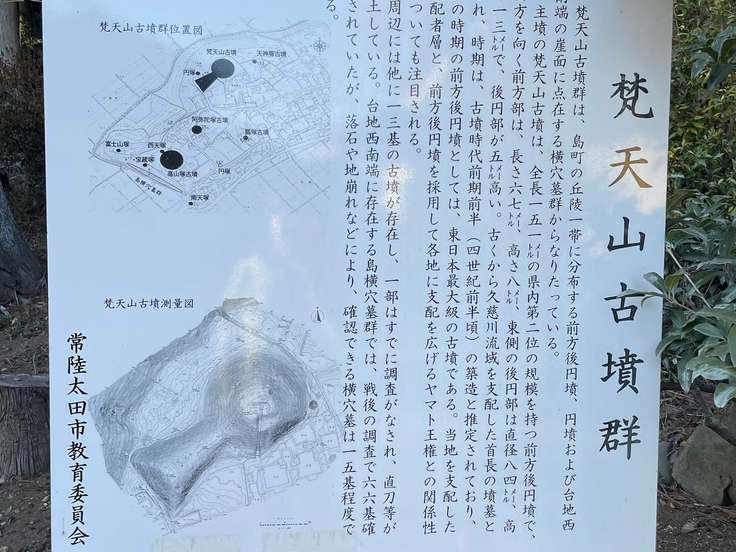 梵天山古墳群
梵天山古墳群は、島町の丘陵一帯に分布する前方後円墳、円墳および台地西
南端の崖面に点在する横穴墓群からなりたっている。
主墳の梵天山古墳は、全長一五一メートルの県内第二位の規模を持つ前方後円墳で、
方を向く前方部は、長さ六七メートル、高さ八メートル、東側の後円部は直径八四メートル、高
一三メートルで、後円部が五メートル高い。古くから久慈川流域を支配した首長の墳墓と
れ、時期は、古墳時代前期前半（四世紀前半頃）の築造と推定されており、
の時期の前方後円墳としては、東日本最大級の古墳である。当地を支配した
配者層と、前方後円墳を採用して各地に支配を広げるヤマト王権との関係性
ついても注目される。
周辺には他に一三基の古墳が存在し、一部はすでに調査がなされ、直刀等が
土している。台地西南端に存在する島横穴墓群では、戦後の調査で六六基確
されていたが、落石や地崩れなどにより、確認できる横穴墓は一五基程度で
る。
梵天山古墳群位置図
梵天山古墳
天神塚古墳
円塚
阿弥陀塚古墳
瓢塚古墳
富士山塚
西天塚
宝蔵塚
高山塚古墳
円塚
島横穴墓群
南天塚
梵天山古墳測量図
常陸太田市教育委員会